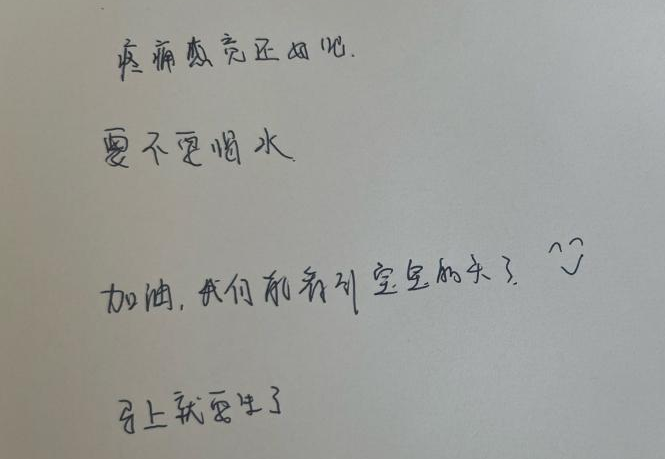 疼痛感觉还好吧.
要不要喝水
加油,我们能看到宝宝的头了
马上就要生了